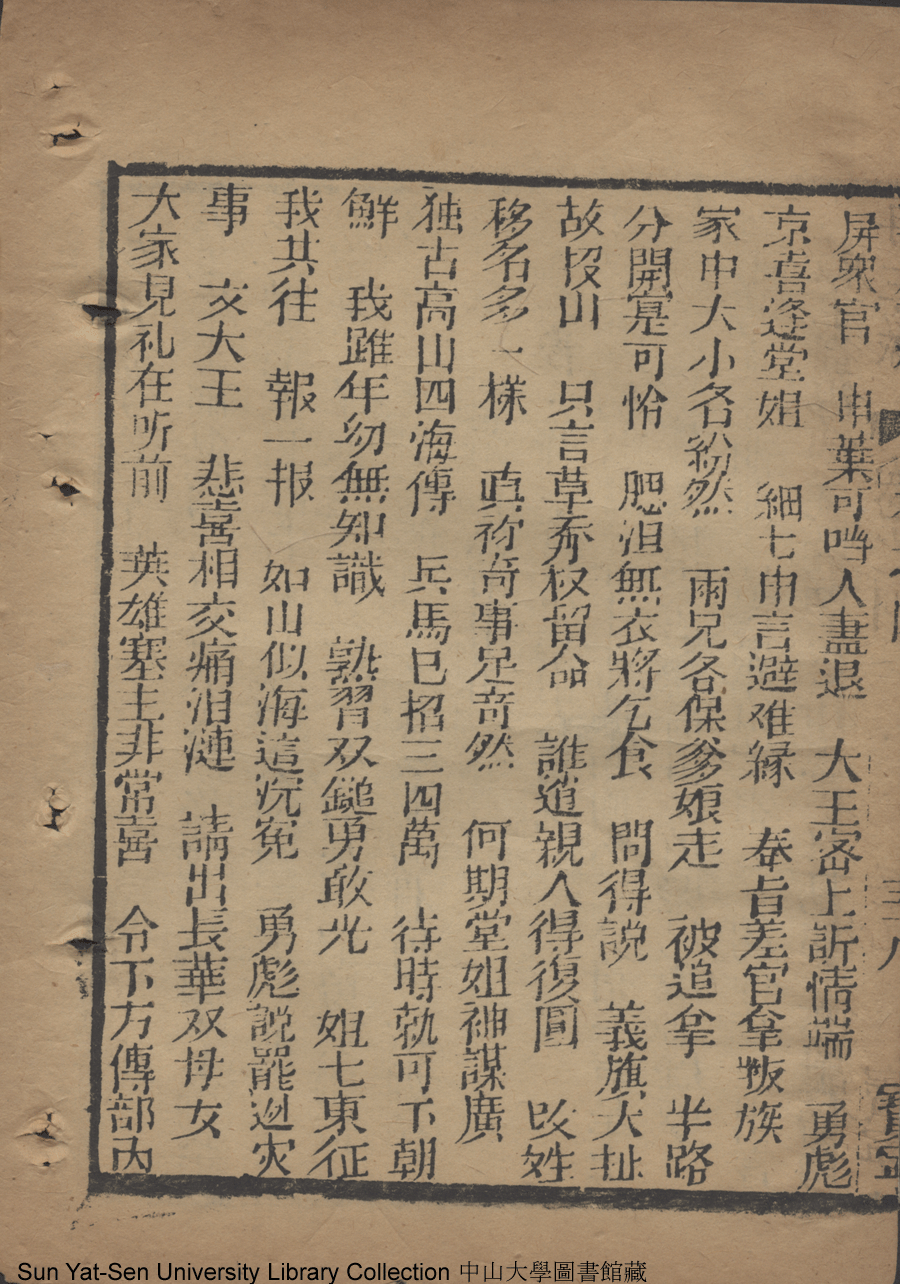 屏衆官　申葉可啲人盡退　大王密上訴情端　勇彪
京喜逢堂姐　細七申言避难緣　奉旨差官拿叛族
家中大小各紛然　兩兄各保爹娘走　被追拿　半路
分開寔可怜　肥泪無衣將乞食　問得説　義旗大扯
故投山　只言草夯权留命　誰道親人得復圓　改姓
移名多一樣　真称奇事足奇然　何期堂姐神謀廣
独古高山四海傳　兵馬已招三四萬　待時執可下朝
鮮　我雖年幼無知識　熟習双鎚勇敢光　姐七東征
我共往　報一报　如山似海這沉冤　勇彪説罷迯灾
事　文大王　悲喜相交痛泪漣　請出長華双母女
大家見礼在听前　英雄塞主非常喜　令下方傳部內
三八
Sun Yat-Sen University Library Collection 中山大學圖書館藏